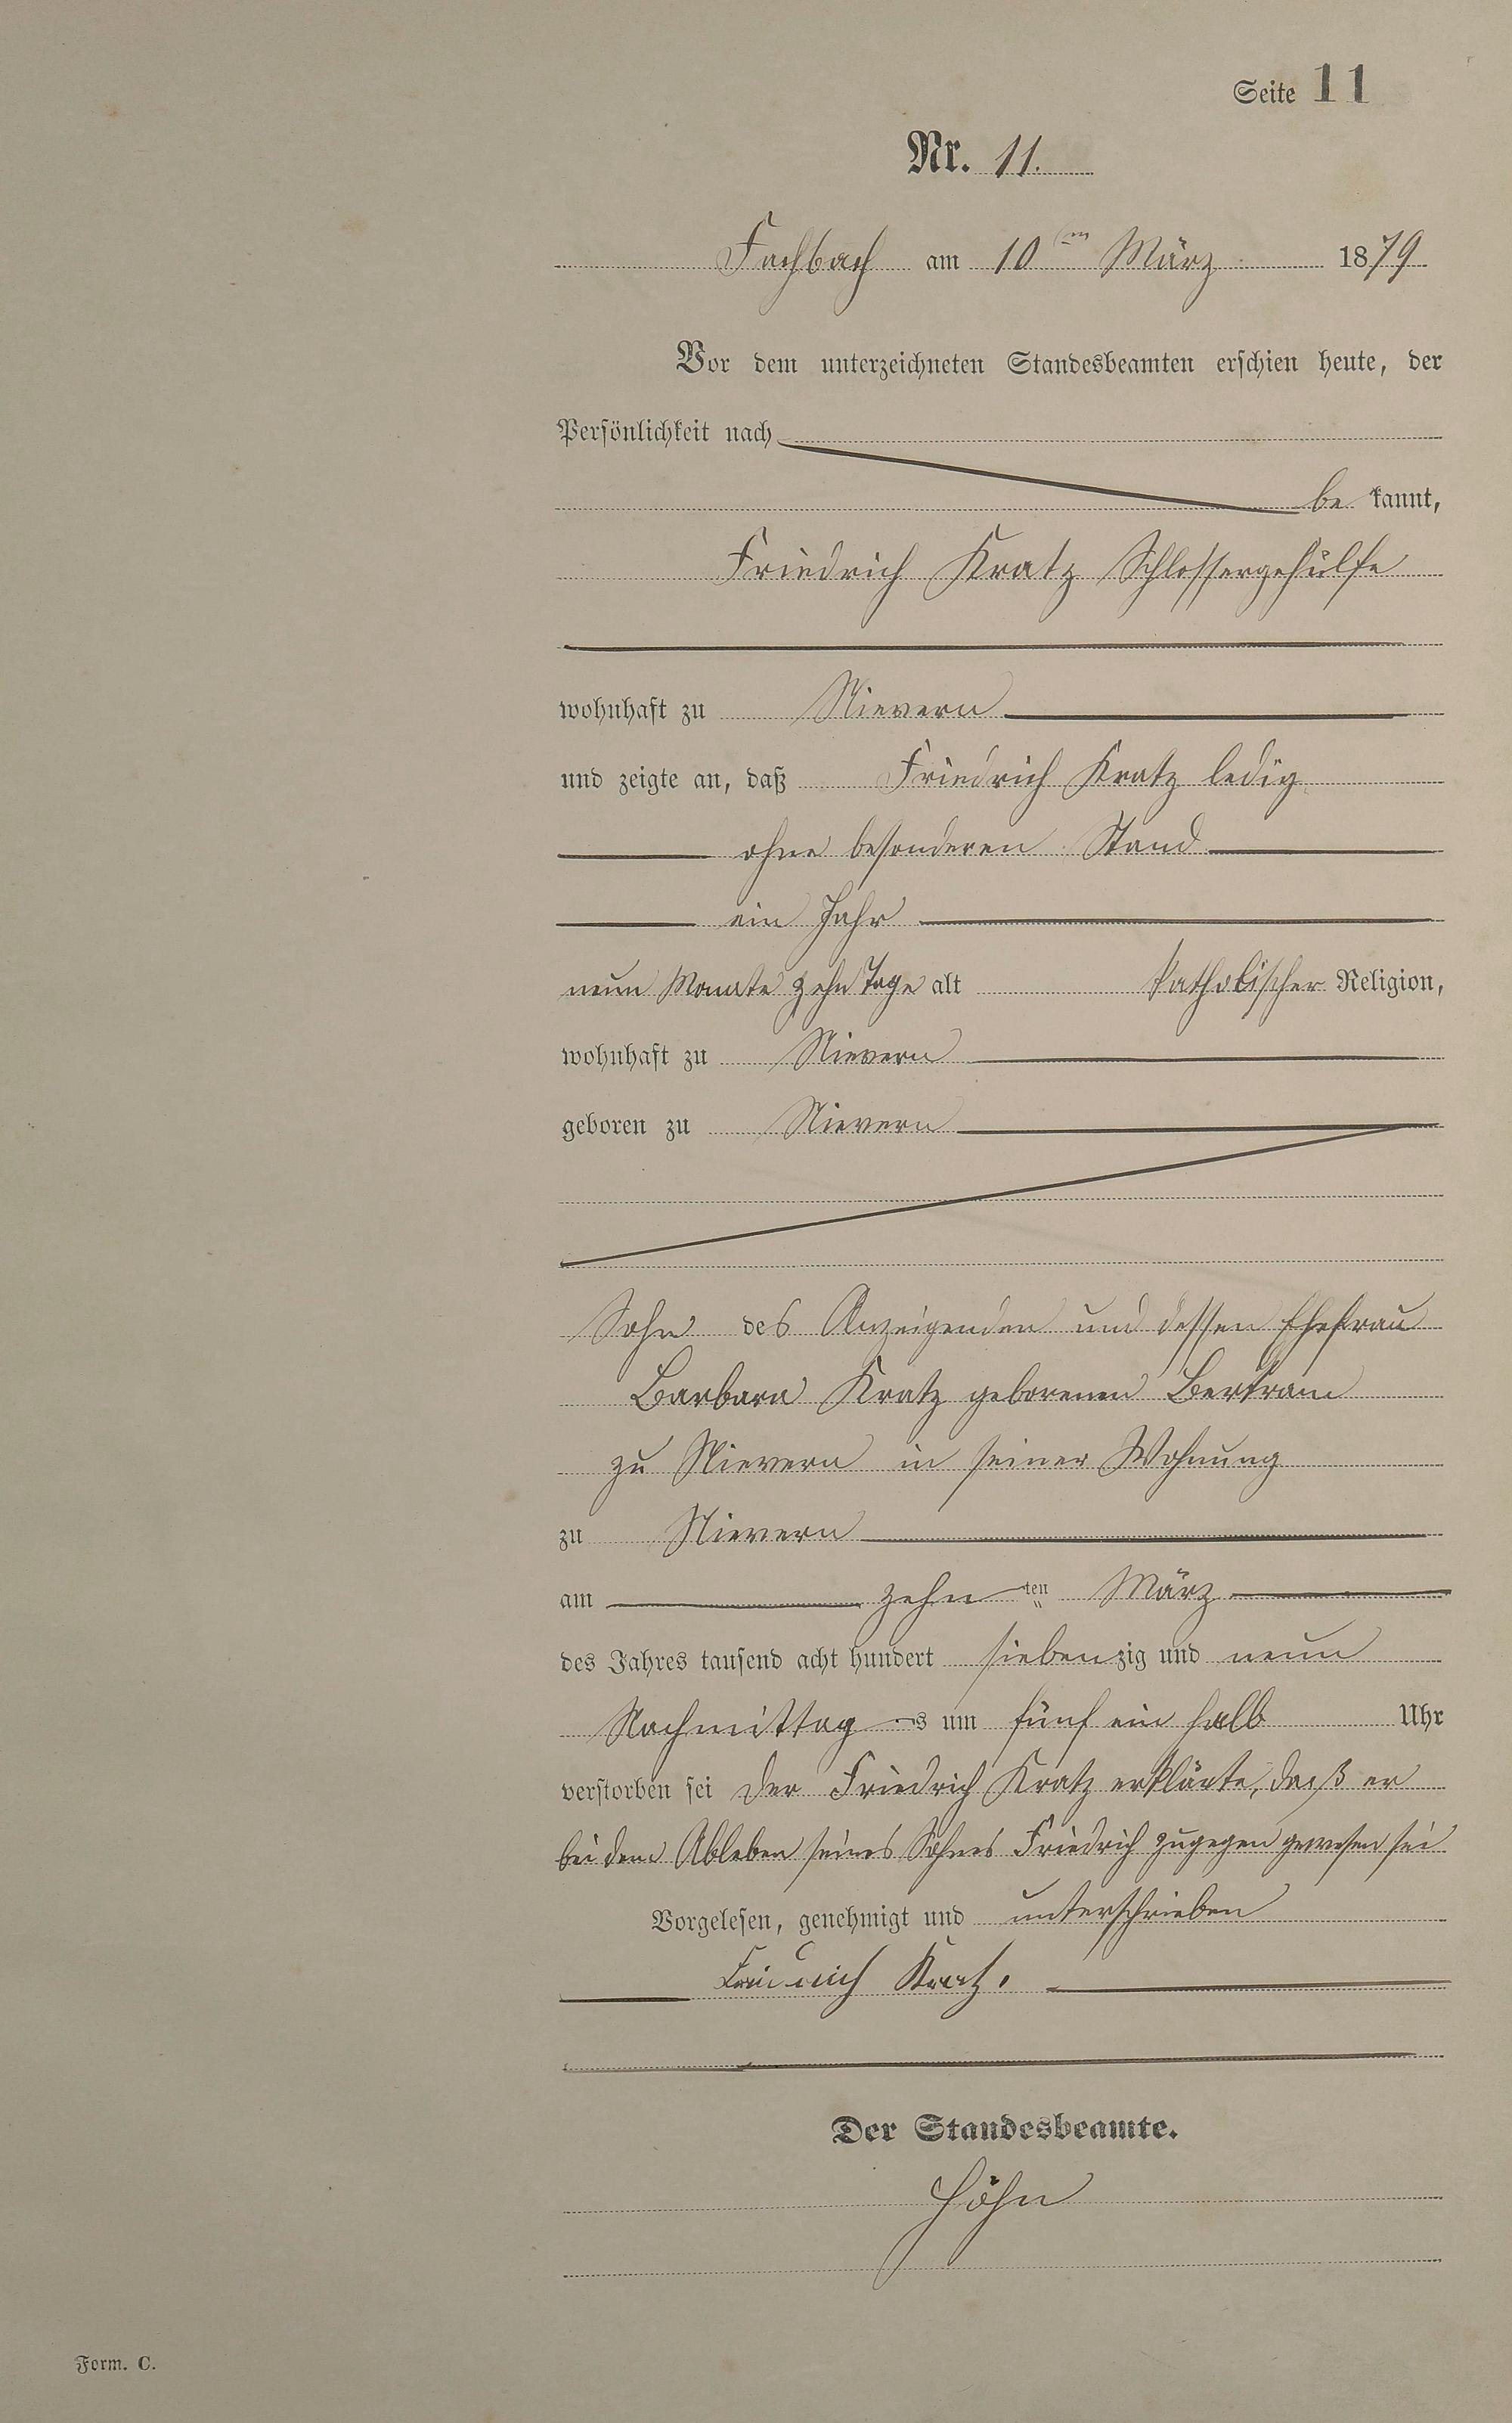 Seite 11
Nr. 11.
Fachbach am 10ten März 1879
Vor dem unterzeichneten Standesbeamten erschien heute, der
Persönlichkeit nach
be kannt,
Friedrich Kratz Schlossergehülfe
wohnhaft zu Nievern
und zeigte an, daß Friedrich Kratz ledig
ohne besonderen Stand
ein Jahr
neun Monate zehn Tage alt katholischer Religion,
wohnhaft zu Nievern
geboren zu Nievern
Sohn des Anzeigenden und dessen Ehefrau
Barbara Kratz geborenen Bertram
zu Nievern in seiner Wohnung
zu Nievern
am zehn ten März
des Jahres tausend acht hundert siebenzig und neun
Nachmittag s um fünf ein halb Uhr
verstorben sei der Friedrich Kratz erklärte, daß er
bei dem Ableben seines Sohnes Friedrich zugegen gewesen sei
Vorgelesen, genehmigt und unterschrieben
Friedrich Kratz.
Der Standesbeamte.
Höhn
Form. C.